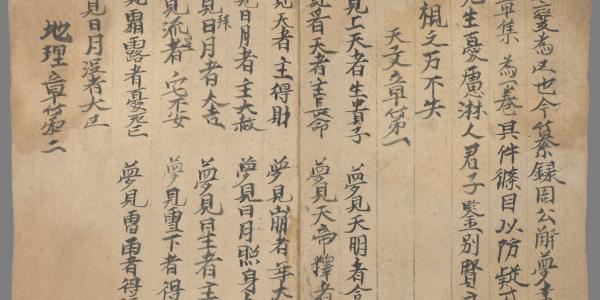 為災也今纂錄周公解夢書
章集為一卷具件條目以防疑
先生憂慮淋人君子鑒別賢
視之万不失
天文章第一
見上天者生貴子 夢見天明者合
天者主長命 夢見天帝釋者
見天者主得財 夢見崩者年大
見日月者主大赦 夢見日月照身
見拜日月者大吉 夢見日主者主
見流星者宅不安 夢見雪下者得
見霜露者憂死亡 夢見雨者得
見日月沒者大凶
地理章第二